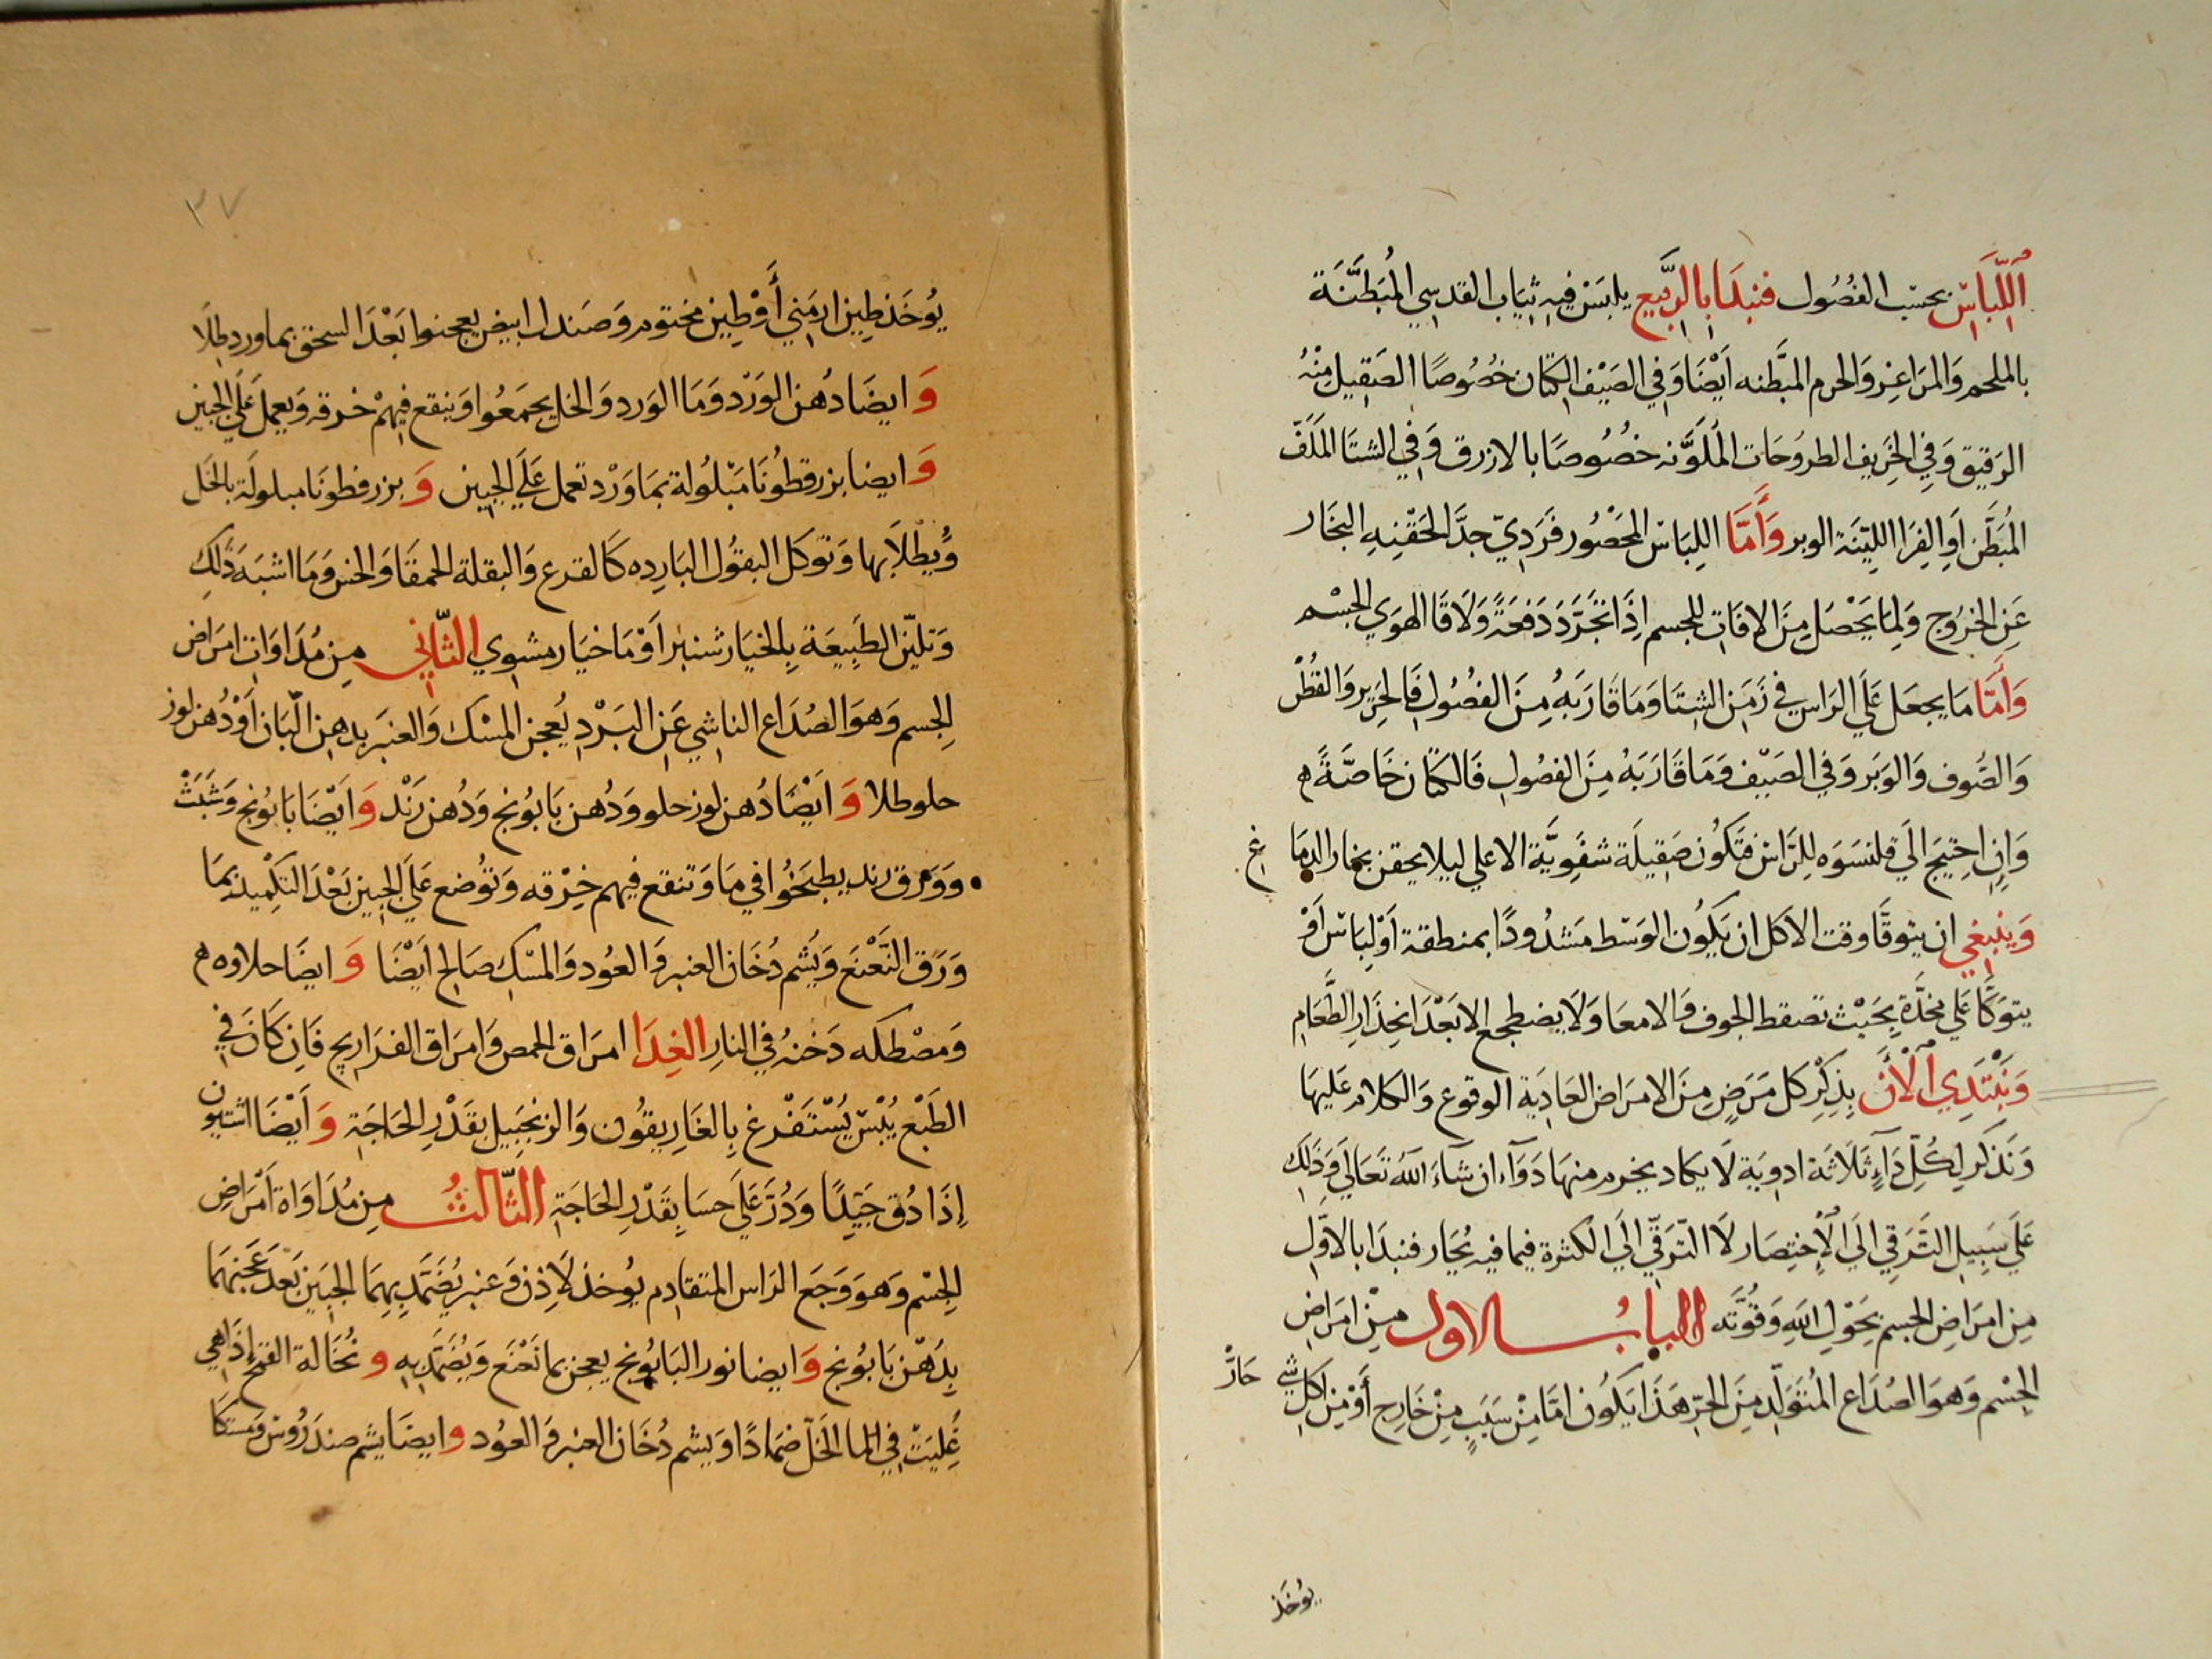 اَللِّبَاسْ بحسَب الفُصُول فنبدَا بالرَّبيع يلبَسْ فيهِ ثيَاب القدسِي المُبَطَّنَة
بالملحم وَالمرَاعِز وَالحرم المبَّطنه اَيْضًا وَفي الصَيْف الكتَان خصُوصًا الصَقِيل مِنْهُ
الرَقيق وَفِي الخَرِيف الطروُحَات المُلَوَّنه خصُوصًا بالازرق وَفِي الشتَا الملَفّ
المُبَطَّن اَوِ الفِرَا اللِيّنَة الوبر وَأَمَّا اللِبَاسْ المحَصُور فَرَدِيّ جدَّا لحَقْنِهِ البخَار
عَنِ الخرُوج وَلِمَا يَحْصَل مِنَ الافَات للجسم اِذَا تجَرَّدَ دَفعَةً وَلَاقَا الهوَي الجسْم
وَأَمَّا مَا يجعَل عَلَي الرَاسِ في زَمَنِ الشِتَا وَمَا قَارَبَهُ مِنَ الفصُولِ فَالحَرِير وَالقُطْن
وَالصُوف وَالوَبَر وَفي الصَيْف وَمَا قَارَبَهُ مِنَ الفصُول فَالكتَان خَاصَّةً ه
وَاِنِ احِتيَج اِلَي قلنسَوَه لِلرَّاسْ فتَكُون صَقِيلَة شفَوِيَّة الاعلي ليلا يحقن بخار الدمَا غ
وَينبغي ان يتوقَّا وقت الاكل ان يَكُون الوَسَط مَشدُودًا بمنطقة اَوْ لِبَاسْ اَوْ
يتوَكَّا عَلي مخدَّةٍ بحَيْث تضغط الجوف وَالامعَا وَلَا يضطجع الا بَعْدَ انحِدَارِ الطَّعَامِ
وَنبْتَدِي اَلْأَنْ بِذِكْر كل مَرَضٍ مِنَ الامرَاض العَادِيَة الوقوع وَالكلام عَليهَا
وَنَذكر لِكلِّ دَآءٍ ثلَاثَة ادوِيَة لَا يكاد يخرم منهَا دَوَآء ان شآءَ اللَّهُ تعَالي وَذَلِك
عَلَي سَبِيلِ التَرَقِي اِلَي الإِختِصَار لَا التَرَقّي اِلَي الكثرة فيما فيه يُحَار فنبدَا بالاوَّل
مِن امرَاضِ الجسم بحَوْل اللَّهِ وَقُوَّتَه البابُ الاول مِنْ امرَاضِ
الجِسْم وَهوَ الصُدَاع المُتَولّد مِنَ الحَرّ هَذَا يَكُون امَّا مِنْ سَبَبٍ مِنْ خَارج أَوْ مِنْ اكل شي حَارّ
يوُخَذ
٣٧
يوُخَذ طِين ارمَني أَوْ طِين مختوم وَصَندل ابيض يعجنوا بَعْدَ السحق بماورد طِلَا
وَ ايضَا دُهن الوَرْد وَمَا الوَرد وَالخل يجمَعُوا وَينقع فيهِمْ خرقه وَيعمل عَلَي الجبِين
وَ ايضا بزرقطونَا مَبْلُولة بمَاوَرْد تعمل عَلَي الجبِين وَ بزرقطونَا مبلولَة بالخَل
وَيُطْلَا بها وَتوكل البقُول البَارِده كَالقرع وَالبقلة الحمقَا وَالخس وَمَا اشبَهَ ذَلِك
وَتليّن الطَبِيعَة بِالخيَار شنبر اَوْ مَا خيَار مشوي الثَّاني مِن مُدَاوَات امرَاض
الجِسم وَهوَ الصُدَاع الناشِي عَنِ البَرْدِ يُعجن المسْك وَالعنبَر بدهن البَان اَوْ دُهن لوز
حلو طلا وَ اَيْضًا دُهن لوز حلو وَدُهن بَابُونج وَدُهن رَنْد وَ اَيْضًا بَابُونج وَشبَثْ
ووَرق رند يطبَخُوا في مَا وَتنقع فيهم خِرْقه وَتوُضع عَلَي الجبين بَعْدَ التكميْد بمَا
وَرَق النَّعْنَع وَيُشم دُخَان العنبر وَ العوُد وَالمسْك صَالح اَيْضًا وَ ايضَا حلاوه ه
وَمصْطكه دَخنهُ في النارِ الغِدَا امرَاق الحمص وَامرَاق الفرَاريج فَاِن كَانَ في
الطَبْع يُبْسْ يُسْتَفْرغ بِالغَارِيقُون وَالزنجَبِيل بقَدْرِ الحَاجَة وَ اَيْضَا افتيمون
اِذَا دُق جَيّدًا وَدُرَّ عَلَي حسَا بِقَدْرِ الحَاجَة الثَّالثُ مِن مُدَاوَاة اَمْرَاضِ
الجِسْم وَهوَ وَجَع الرَاس المتقَادِم يوُخذ لَاذِن وَعنبر يُضَمَّد بِهمَا الجبَين بَعْدَ عَجنهمَا
بِدَهْن بَابُونج وَ ايضا نور البَابُونج يعجن بما نَعْنَع وَيُضَمَّد بِه و نُخَالة القمح اِذَا هي
غُلِيَتْ في المَا الخَلّ ضمَادًا وَيشم دُخَان العنبر وَ العوُد و ايضَا يشم صندَرُوس وَمستكا